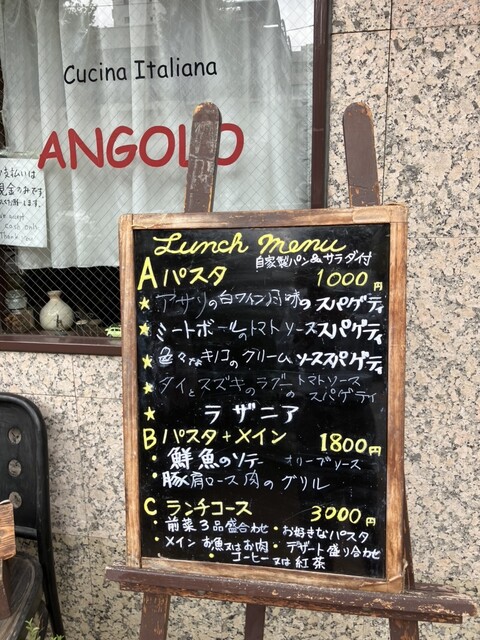 Cucina Italiana
ANGOLO
お支払いは
現金のみです
cash only
Thank you
Lunch menu
自家製パン&サラダ付
A パスタ 1000円
★ アサリの白ワイン風味のスパゲティ
★ ミートボールのトマトソーススパゲティ
★ 色々なキノコのクリームソーススパゲティ
★ タイとスズキのラグーのトマトソース
スパゲティ
★ ラザニア
B パスタ+メイン 1800円
・鮮魚のソテー オリーブソース
・豚肩ロース肉のグリル
C ランチコース 3000円
・前菜3品盛合わせ ・お好きなパスタ
・メイン お魚又はお肉 ・デザート盛り合わせ
・コーヒー又は紅茶